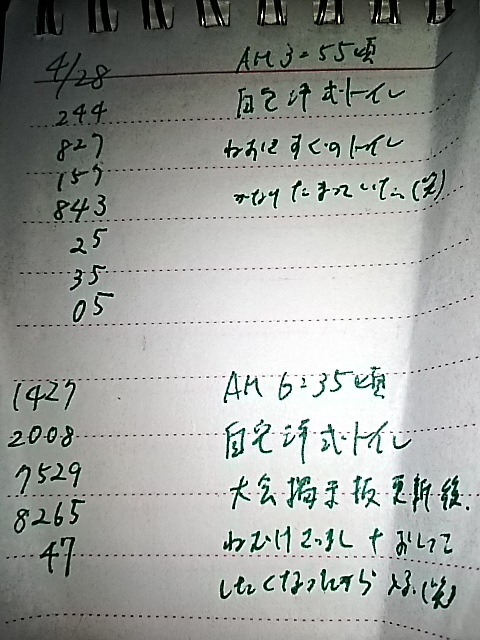 4/28 AM 3:55頃
244 自宅洋式トイレ
827 ねおきすぐのトイレ
157 かなりたまっていた。(笑)
843
25
35
05
1427 AM 6:35頃
2008 自宅洋式トイレ
7529 大会掲示板更新後、
8265 ねむけざまし+おしっこ
47 したくなったから
(笑)